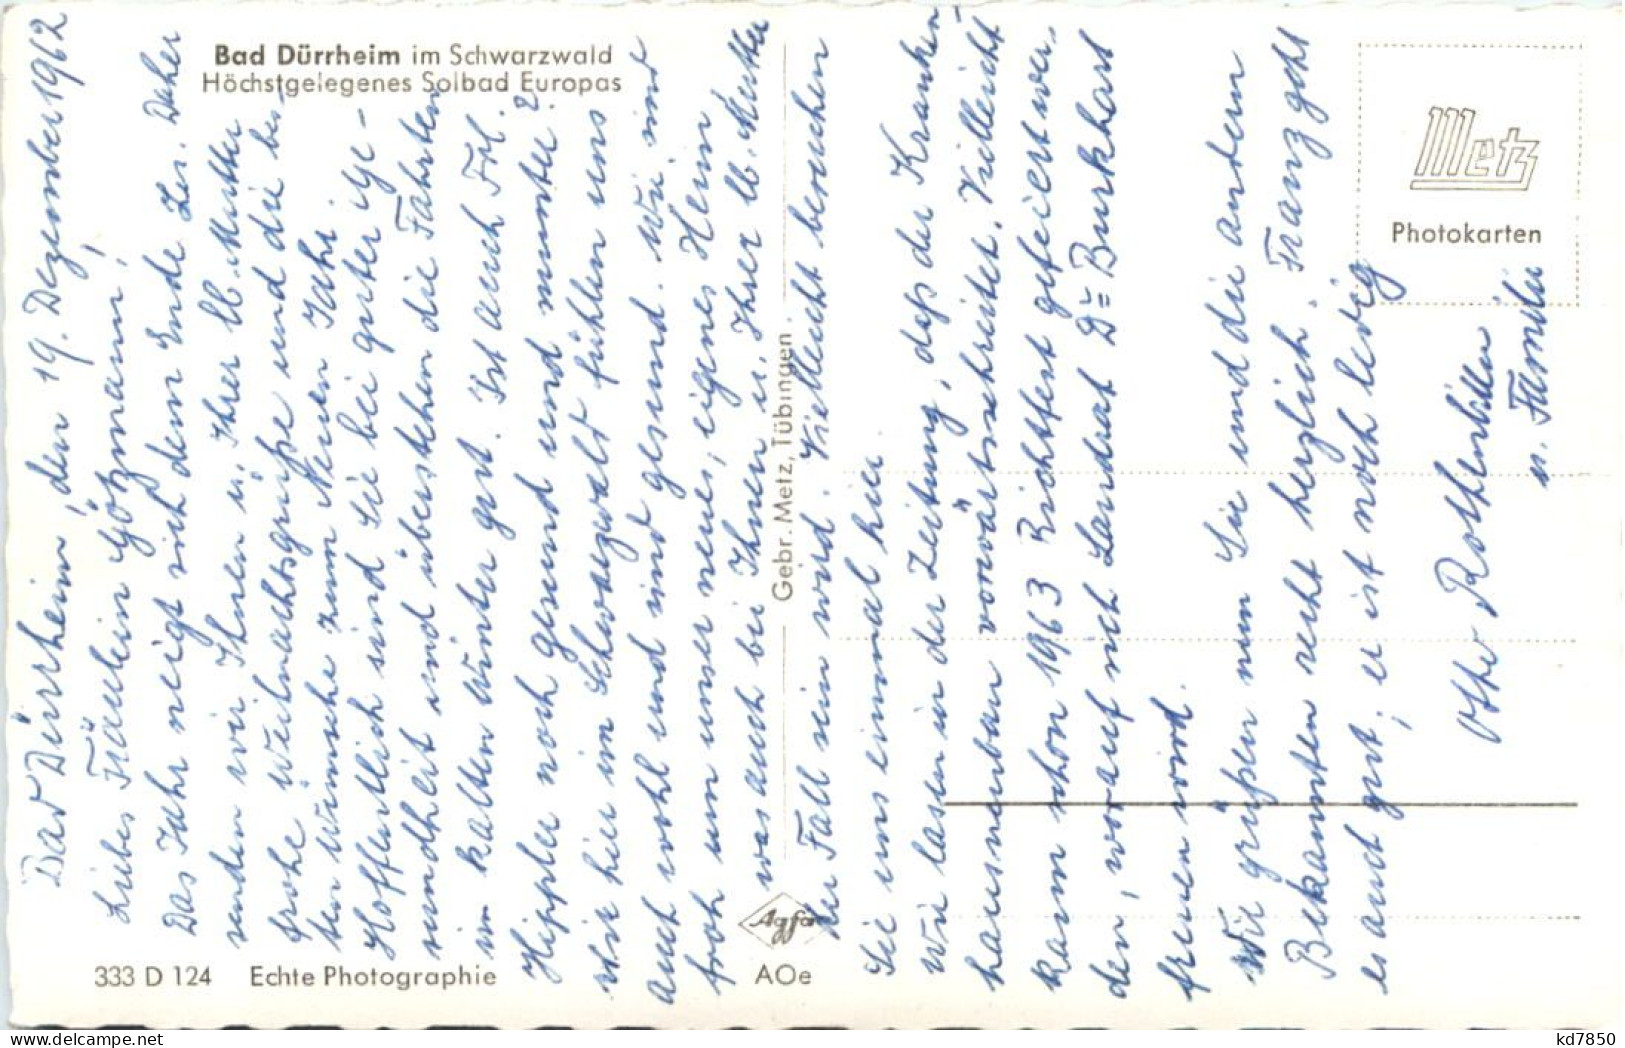 Bad Dürrheim im Schwarzwald
Höchstgelegenes Solbad Europas
Bad Dürrheim, den 19. Dezember 1962
Liebes Fräulein Götzmann!
Das Jahr neigt sich dem Ende zu. Daher
senden wir Ihnen u. Ihrer lb. Mutter
frohe Weihnachtsgrüße und die bes-
ten Wünsche zum Neuen Jahr.
Hoffentlich sind Sie bei guter Ge-
sundheit und überstehen die Fahrten
im kalten Winter gut. Ist auch Frl.
Hippler noch gesund und munter?
Wir hier im Schwarzwald fühlen uns
auch wohl und sind gesund. Wir sind
froh um unser neues, eigenes Heim,
was auch bei Ihnen u. Ihrer lb. Mutter
der Fall sein wird. Vielleicht besuchen
Sie uns einmal hier.
Wir lasen in der Zeitung, daß der Kranken-
hausneubau vorwärtsschreitet. Vielleicht
kann schon 1963 Richtfest gefeiert wer-
den, worauf sich Landrat Dr. Burkhart
freuen wird.
Wir grüßen nun Sie und die andern
Bekannten recht herzlich. Franz geht
es auch gut; er ist noch ledig
Otto Rothenbiller
u. Familie
Gebr. Metz, Tübingen
Metz
Photokarten
Agfa
333 D 124 Echte Photographie
AOe
kd7850